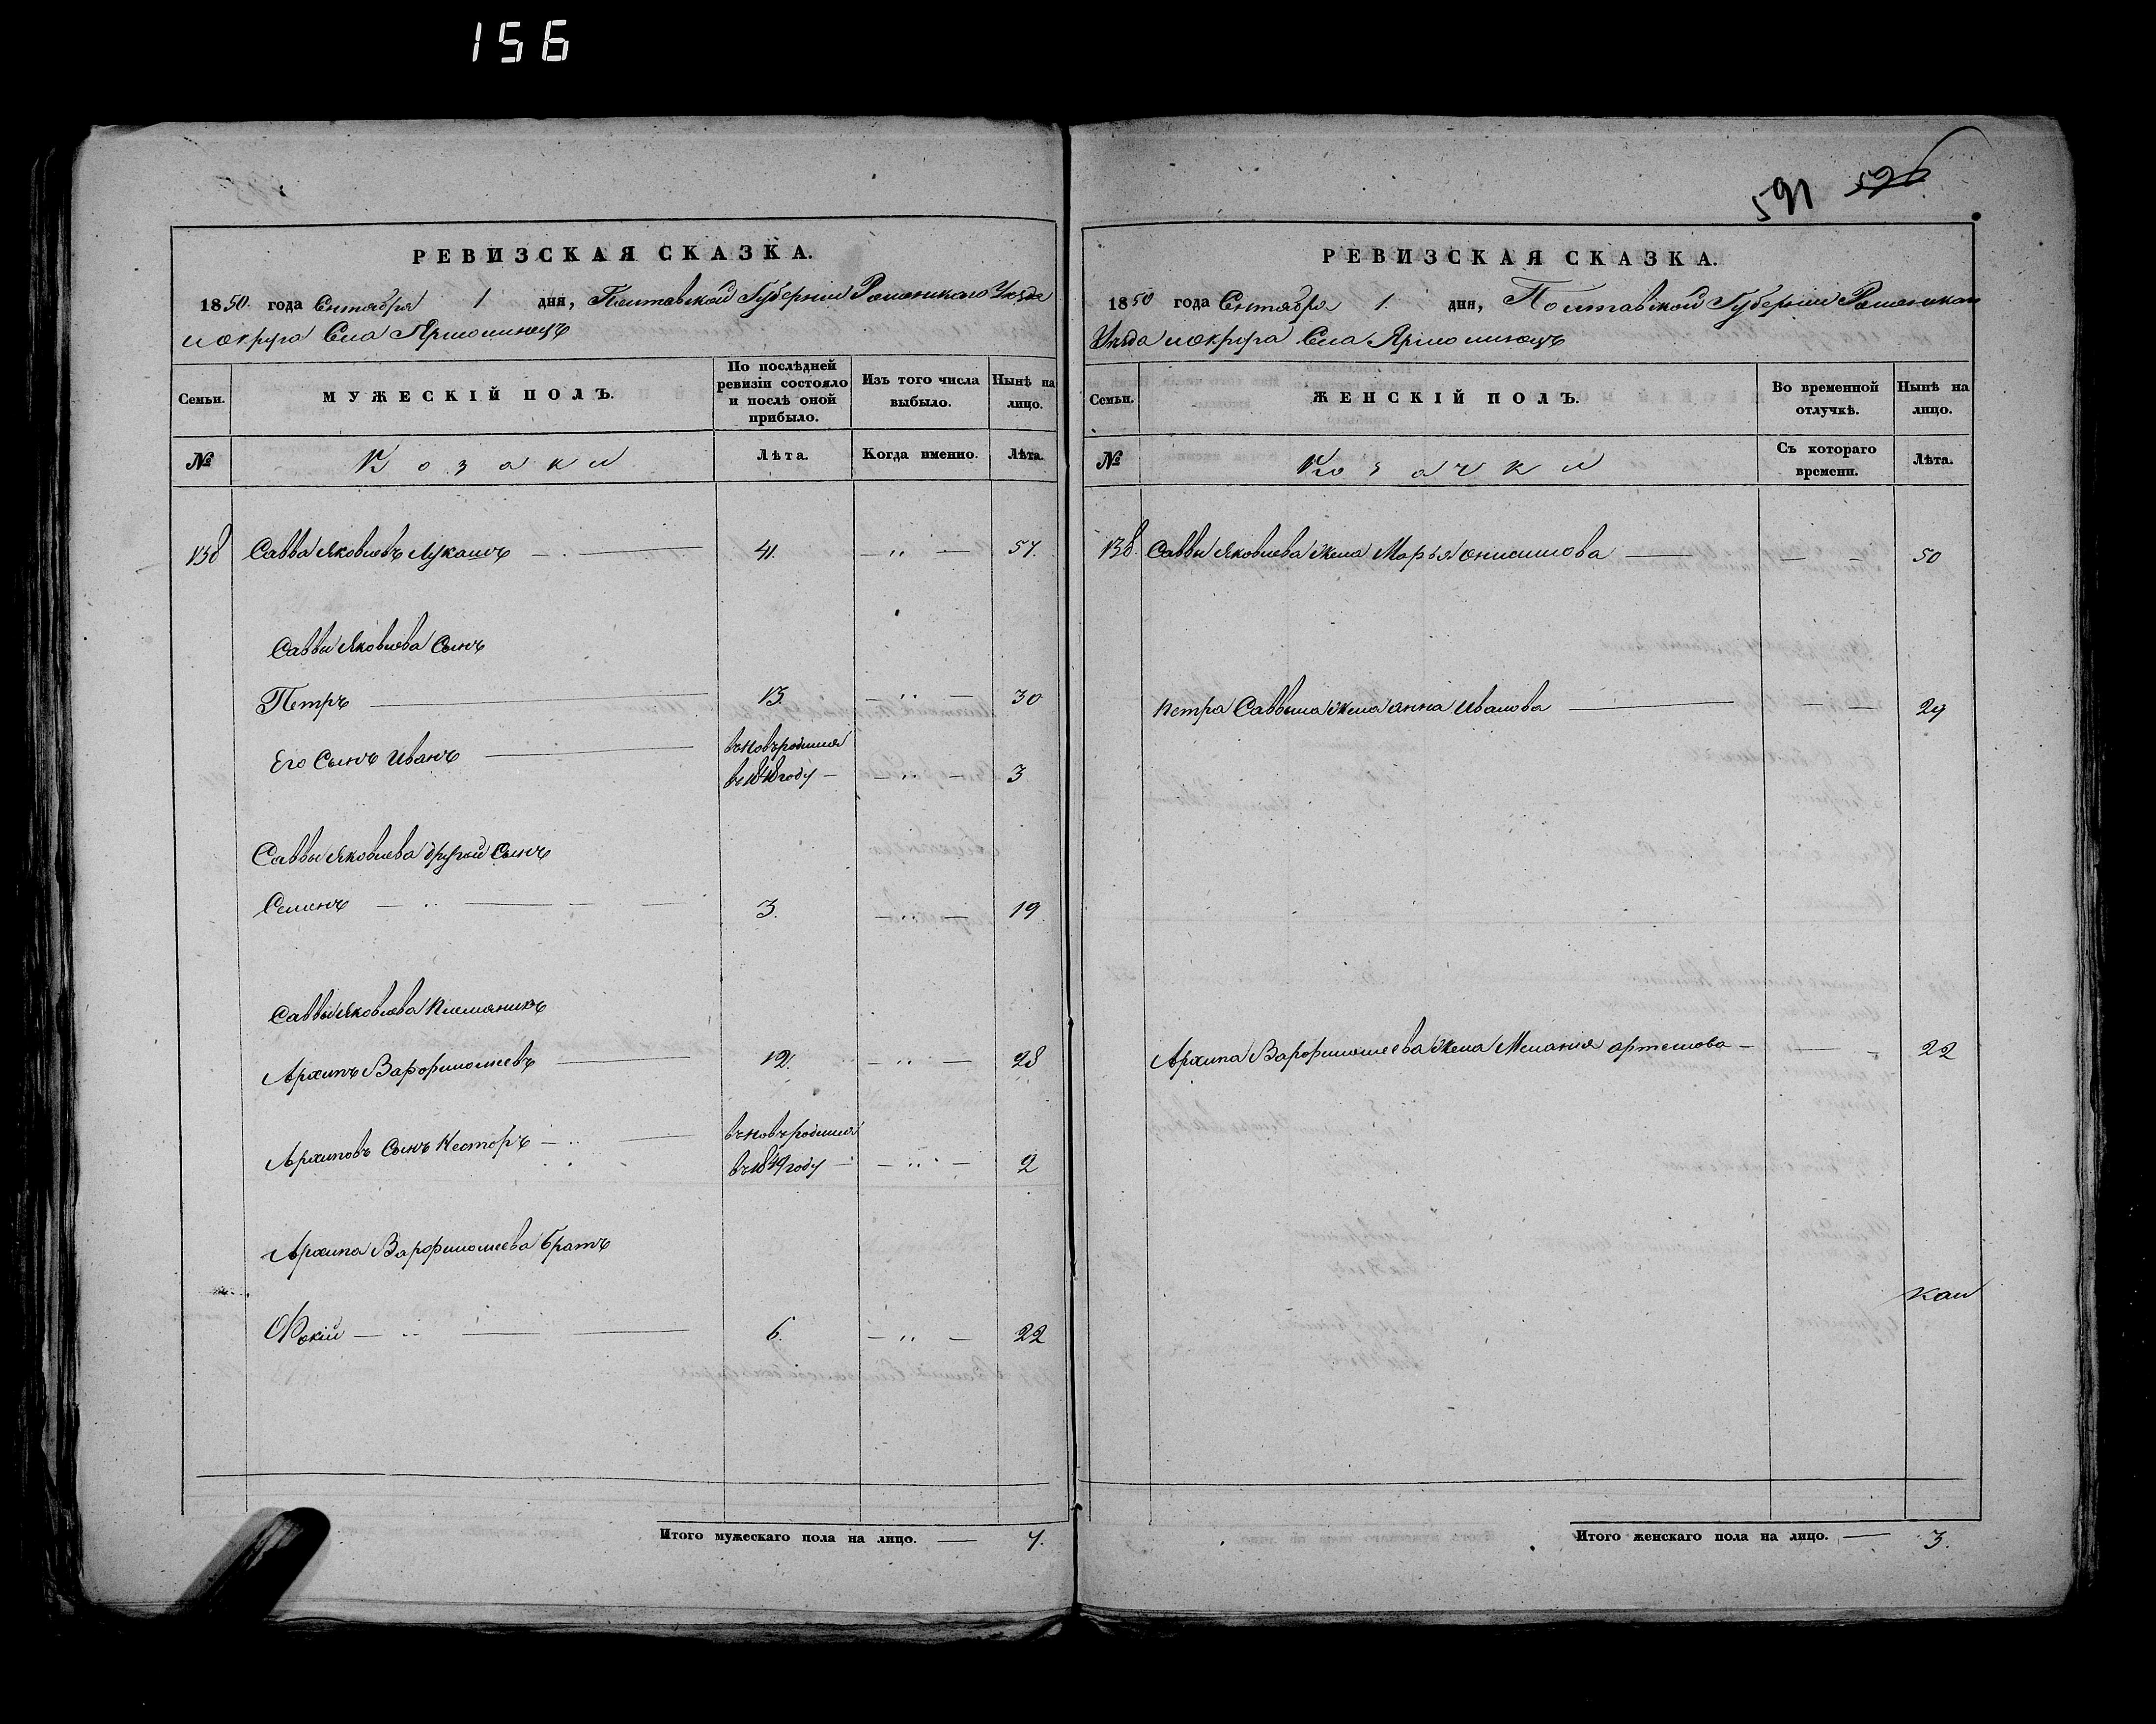 156
591 596
РЕВИЗСКАЯ СКАЗКА.
1850. года Сентября 1 дня, Полтавской Губернии Роменского Уезда
и округа Села Ярмолинецъ
Семьи.
МУЖЕСКІЙ ПОЛЪ.
По послѣдней ревизіи состояло и послѣ оной прибыло.
Изъ того числа выбыло.
Нынѣ на лицо.
№
Козаки
Лѣта.
Когда именно.
Лѣта.
138 Савва Яковлевъ Лукашъ 41. 57.
Саввы Яковлева Сынъ
Петръ 13. 30
Его Сынъ Иванъ
вновъродился
въ 1848 году 3
Саввы Яковлева другой Сынъ
Семенъ 3. 19
Саввы Яковлева племяникъ
Архипъ Варфоломеевъ 12. 28
Архиповъ Сынъ Несторъ
вновъродился
въ 1849 году 2
Архипа Варфоломеева братъ
Фокій 6. 22
Итого мужескаго пола на лицо. 7.
РЕВИЗСКАЯ СКАЗКА.
1850 года Сентября 1. дня, Полтавской Губернии Роменскаго
Уезда и округа Села Ярмолинецъ
Семьи.
ЖЕНСКІЙ ПОЛЪ.
Во временной отлучкѣ.
Нынѣ на лицо.
№
Козачки
Съ котораго времени.
Лѣта.
138. Саввы Яковлева жена Марья Онисимова 50
Петра Саввина жена Анна Иванова 27
Архипа Варфоломеева жена Мелания Артемова 22
Итого женскаго пола на лицо. 3.